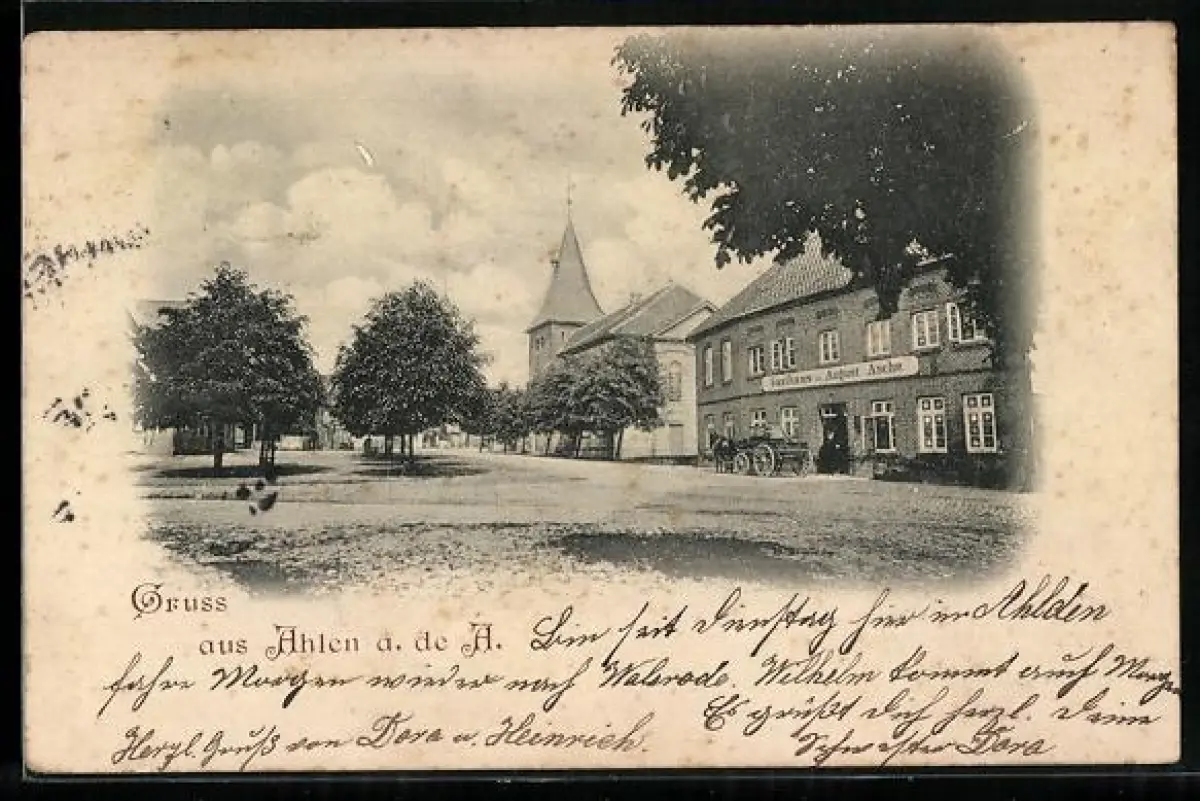 Gasthaus von August Asche
Gruss
aus Ahlen a. de A.
Bin seit Dienstag hier in Ahlden
fahre Morgen wieder nach Walsrode. Wilhelm kommt auch Morgen
Es grüßt Dich herzl. Deine
Schwester Dora
Herzl. Gruß von Dora u. Heinrich.